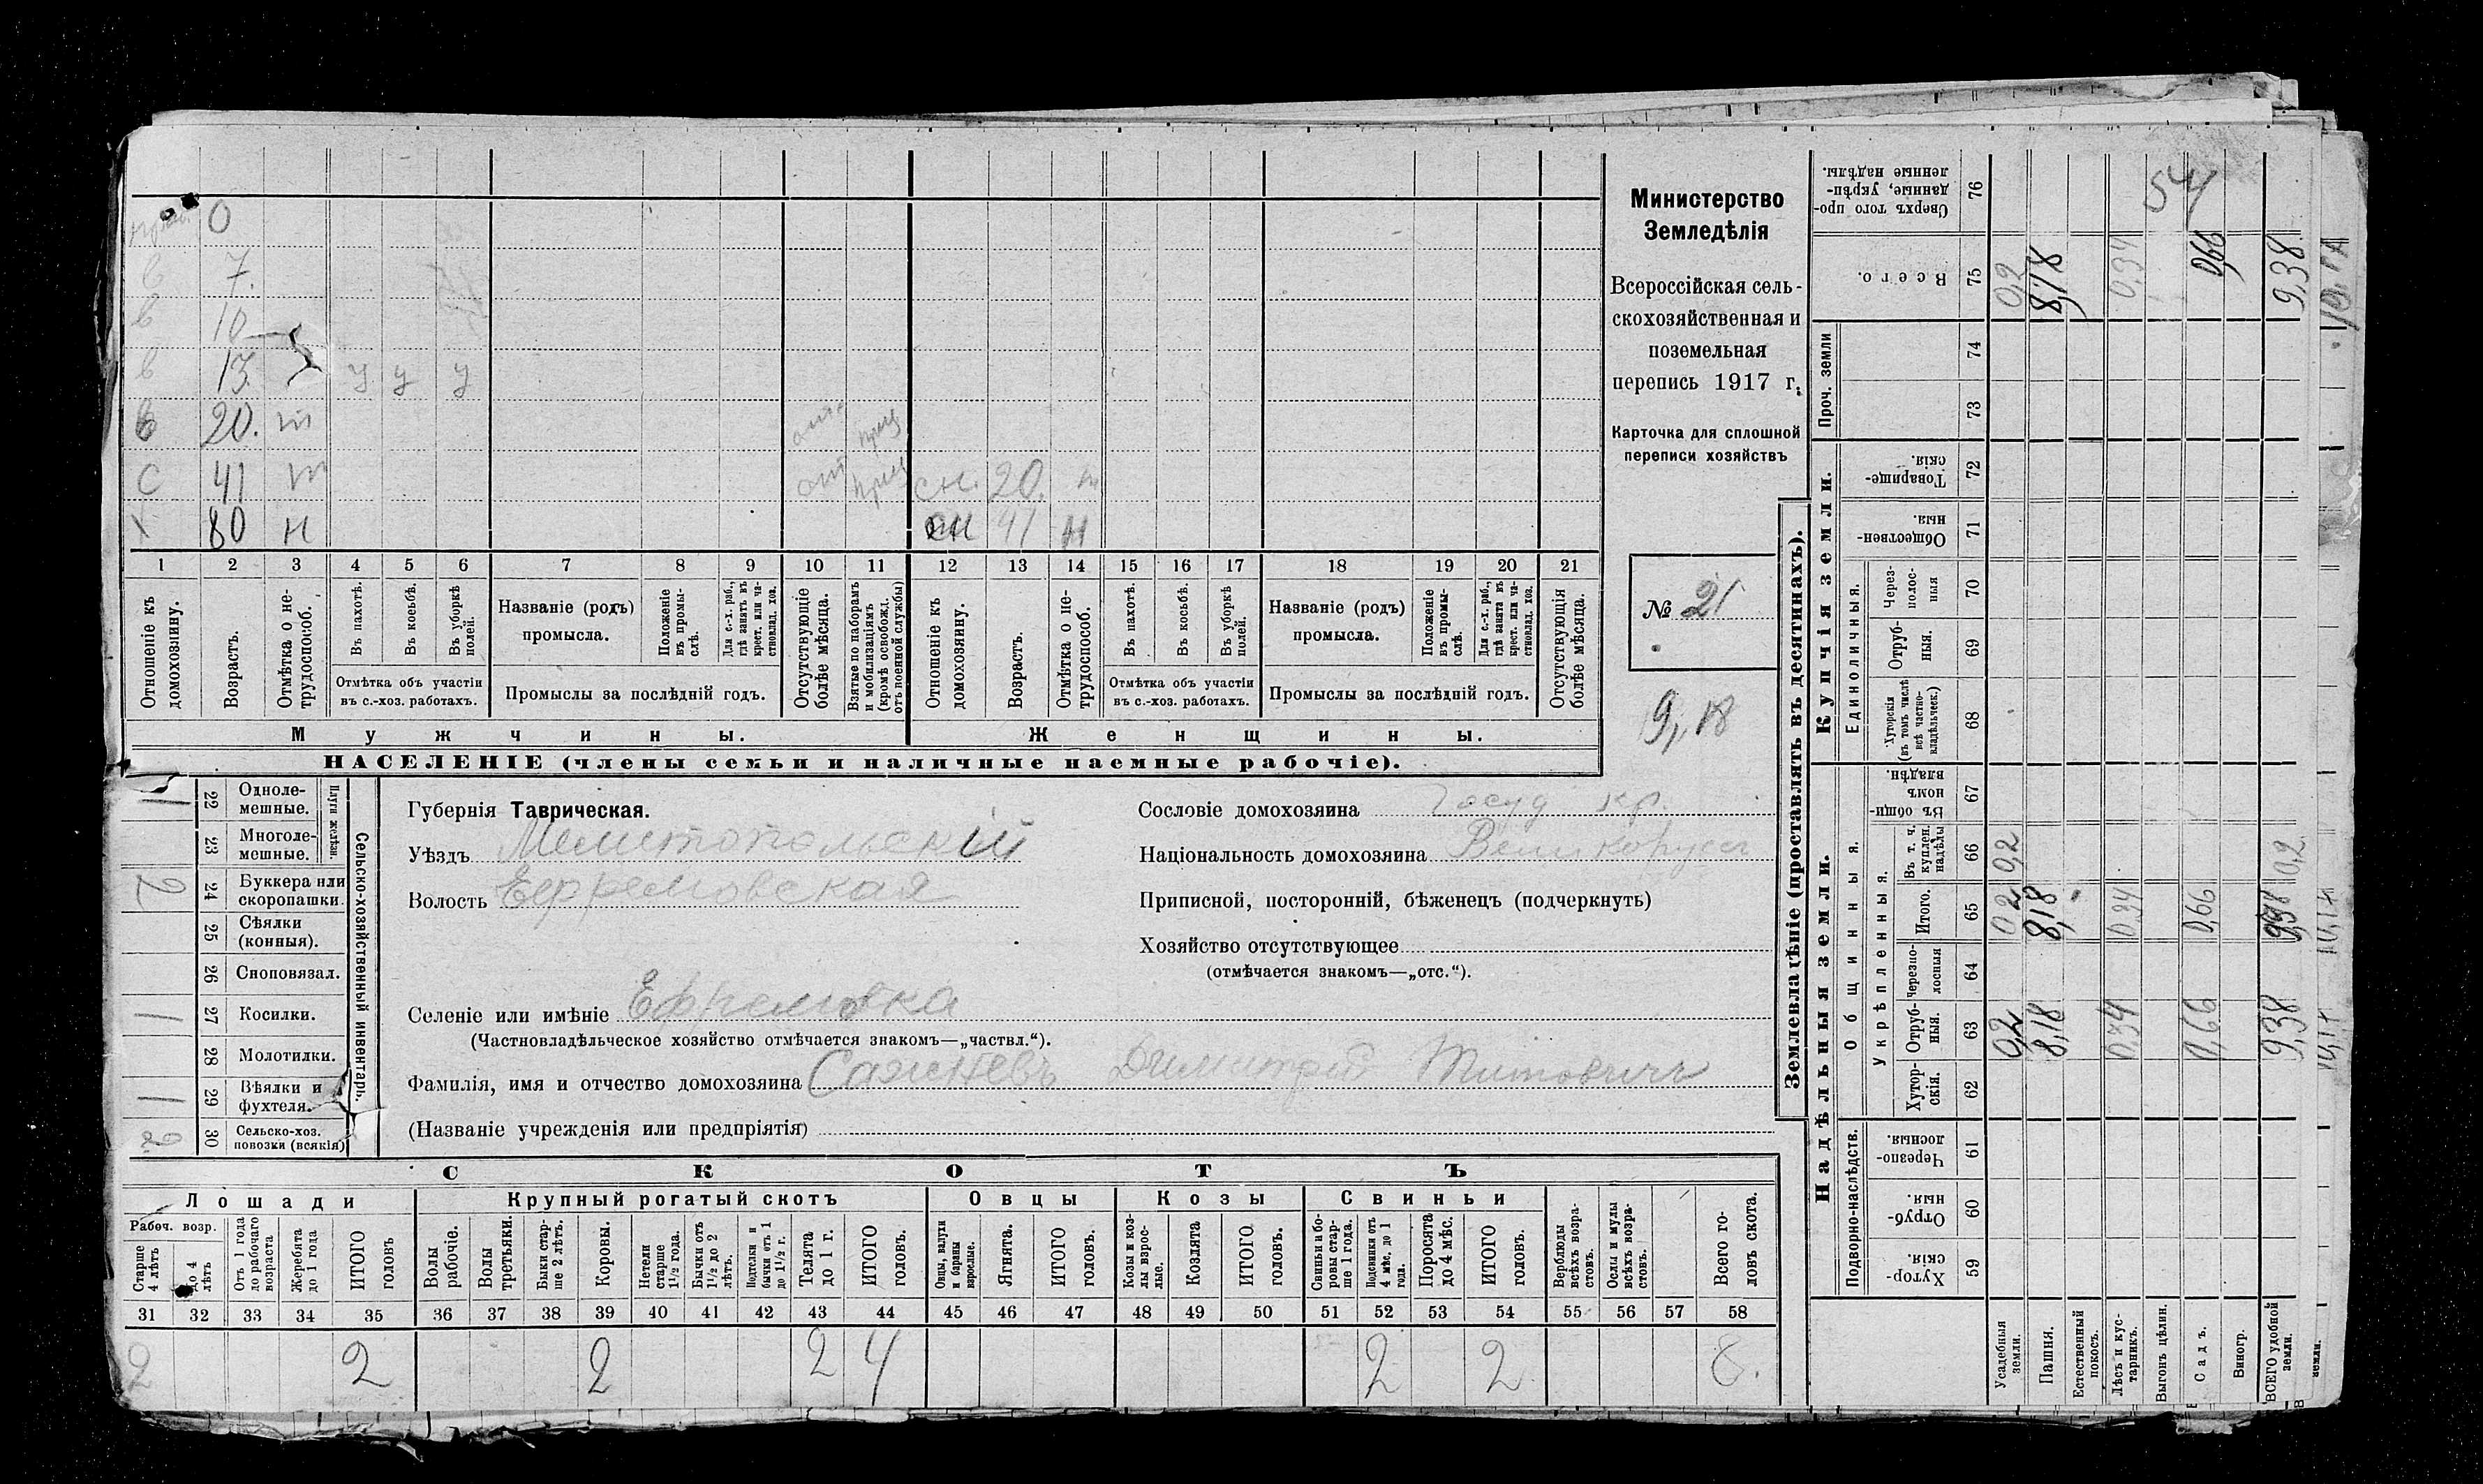 О
в 7.
в 10
в 13 у у у
в 20. т
с 41 т сн. 20. т
х 80 н сн 41 н
1 2 3 4 5 6 7 8 9 10 11 12 13 14 15 16 17 18 19 20 21
Отношеніе къ домохозяину.
Возрастъ.
Отмѣтка о не-
трудоспособ.
Въ пахотѣ.
Въ косьбѣ.
Въ уборкѣ
полей.
Отмѣтка объ участіи
въ с.-хоз. работахъ.
Названіе (родъ)
промысла.
Положеніе
въ промы-
слѣ.
Для с.-х. раб.,
гдѣ занятъ въ
крест. или ча-
стновлад. хоз.
Промыслы за послѣдній годъ.
Отсутствующіе
болѣе мѣсяца.
Взятые по наборамъ
и мобилизаціямъ
(кромѣ освобожд.
отъ военной службы)
Отношеніе къ
домохозяину.
Возрастъ.
Отмѣтка о не-
трудоспособ.
Въ пахотѣ.
Въ косьбѣ.
Въ уборкѣ
полей.
Отмѣтка объ участіи
въ с.-хоз. работахъ.
Названіе (родъ)
промысла.
Положеніе
въ промы-
слѣ.
Для с.-х. раб.,
гдѣ занята въ
крест. или ча-
стновлад. хоз.
Промыслы за послѣдній годъ.
Отсутствующія
болѣе мѣсяца.
Мужчины.
Женщины.
НАСЕЛЕНІЕ (члены семьи и наличные наемные рабочіе).
Министерство
Земледѣлія
Всероссійская сель-
скохозяйственная и
поземельная
перепись 1917 г.
Карточка для сплошной
переписи хозяйствъ
№ 21
9,18
Сельско-хозяйственный инвентарь.
Плуги желѣзн.
1 22 Одноле-
мешные.
23 Многоле-
мешные.
2 24 Буккера или
скоропашки.
25 Сѣялки
(конныя).
26 Сноповязал.
1 27 Косилки.
28 Молотилки.
1 29 Вѣялки и
фухтеля.
2 30 Сельско-хоз.
повозки (всякія)
Губернія Таврическая.
Уѣздъ Мелитопольскій
Волость Ефремовская
Селеніе или имѣніе Ефремовка
(Частновладѣльческое хозяйство отмѣчается знакомъ—„частвл.“).
Фамилія, имя и отчество домохозяина Сажневъ Димитрій Титовичъ
(Названіе учрежденія или предпріятія)
Сословіе домохозяина Госуд кр.
Національность домохозяина Великорусс
Приписной, посторонній, бѣженецъ (подчеркнуть)
Хозяйство отсутствующее
(отмѣчается знакомъ—„отс.“).
СКОТЪ
Лошади
Крупный рогатый скотъ
Овцы
Козы
Свиньи
Рабоч. возр.
Старше
4 лѣтъ
до 4
лѣтъ
Отъ 1 года
до рабочаго
возраста
Жеребята
до 1 года
ИТОГО
головъ
Волы
рабочіе.
Волы
третьяки.
Быки стар-
ше 2 лѣтъ.
Коровы.
Нетели
старше
1½ года.
Бычки отъ
1½ до 2
лѣтъ.
Подтелки и
бычки отъ 1
до 1½ г.
Телята
до 1 г.
ИТОГО
головъ.
Овцы, валухи
и бараны
взрослые.
Ягнята.
ИТОГО
головъ.
Козы и коз-
лы взрос-
лые.
Козлята
ИТОГО
головъ.
Свиньи и бо-
ровы стар-
ше 1 года.
Подсвинки отъ
4 мѣс. до 1
года.
Поросята
до 4 мѣс.
ИТОГО
головъ.
Верблюды
всѣхъ возра-
стовъ.
Ослы и мулы
всѣхъ возра-
стовъ.
Всего го-
ловъ скота.
31 32 33 34 35 36 37 38 39 40 41 42 43 44 45 46 47 48 49 50 51 52 53 54 55 56 57 58
2 2 2 2 4 2 2 8.
Землевладѣніе (проставлять въ десятинахъ).
Купчія земли.
Надѣльныя земли.
Проч. земли
Единоличныя.
Общинныя.
Укрѣпленныя.
Подворно-наслѣдств.
Сверхъ того про-
данные, укрѣп-
ленные надѣлы.
76
544
Всего.
75
0,2 8,18 0,34 0,66 9,38
74
73
Товарище-
скія.
72
Обществен-
ныя.
71
Через-
полос-
ныя
70
Отруб-
ныя.
69
Хуторскія
(въ томъ числѣ
всѣ частно-
владѣльческ.)
68
Въ общи-
номъ
владѣн.
67
Въ т. ч.
куплен.
надѣлы
66
0,2 0,2
Итого.
65
0,2 8,18 0,34 0,66
Черезпо-
лосныя
64
Отруб-
ныя.
63
0,2 8,18 0,34 0,66 9,38
Хутор-
скія.
62
Черезпо-
лосныя.
61
Отруб-
ныя.
60
Хутор-
скія
59
Усадебныя
земли.
Пашня.
Естественный
покосъ.
Лѣсъ и кус-
тарникъ.
Выгонъ цѣлин.
Садъ.
Виногр.
ВСЕГО удобной
земли.
земли.